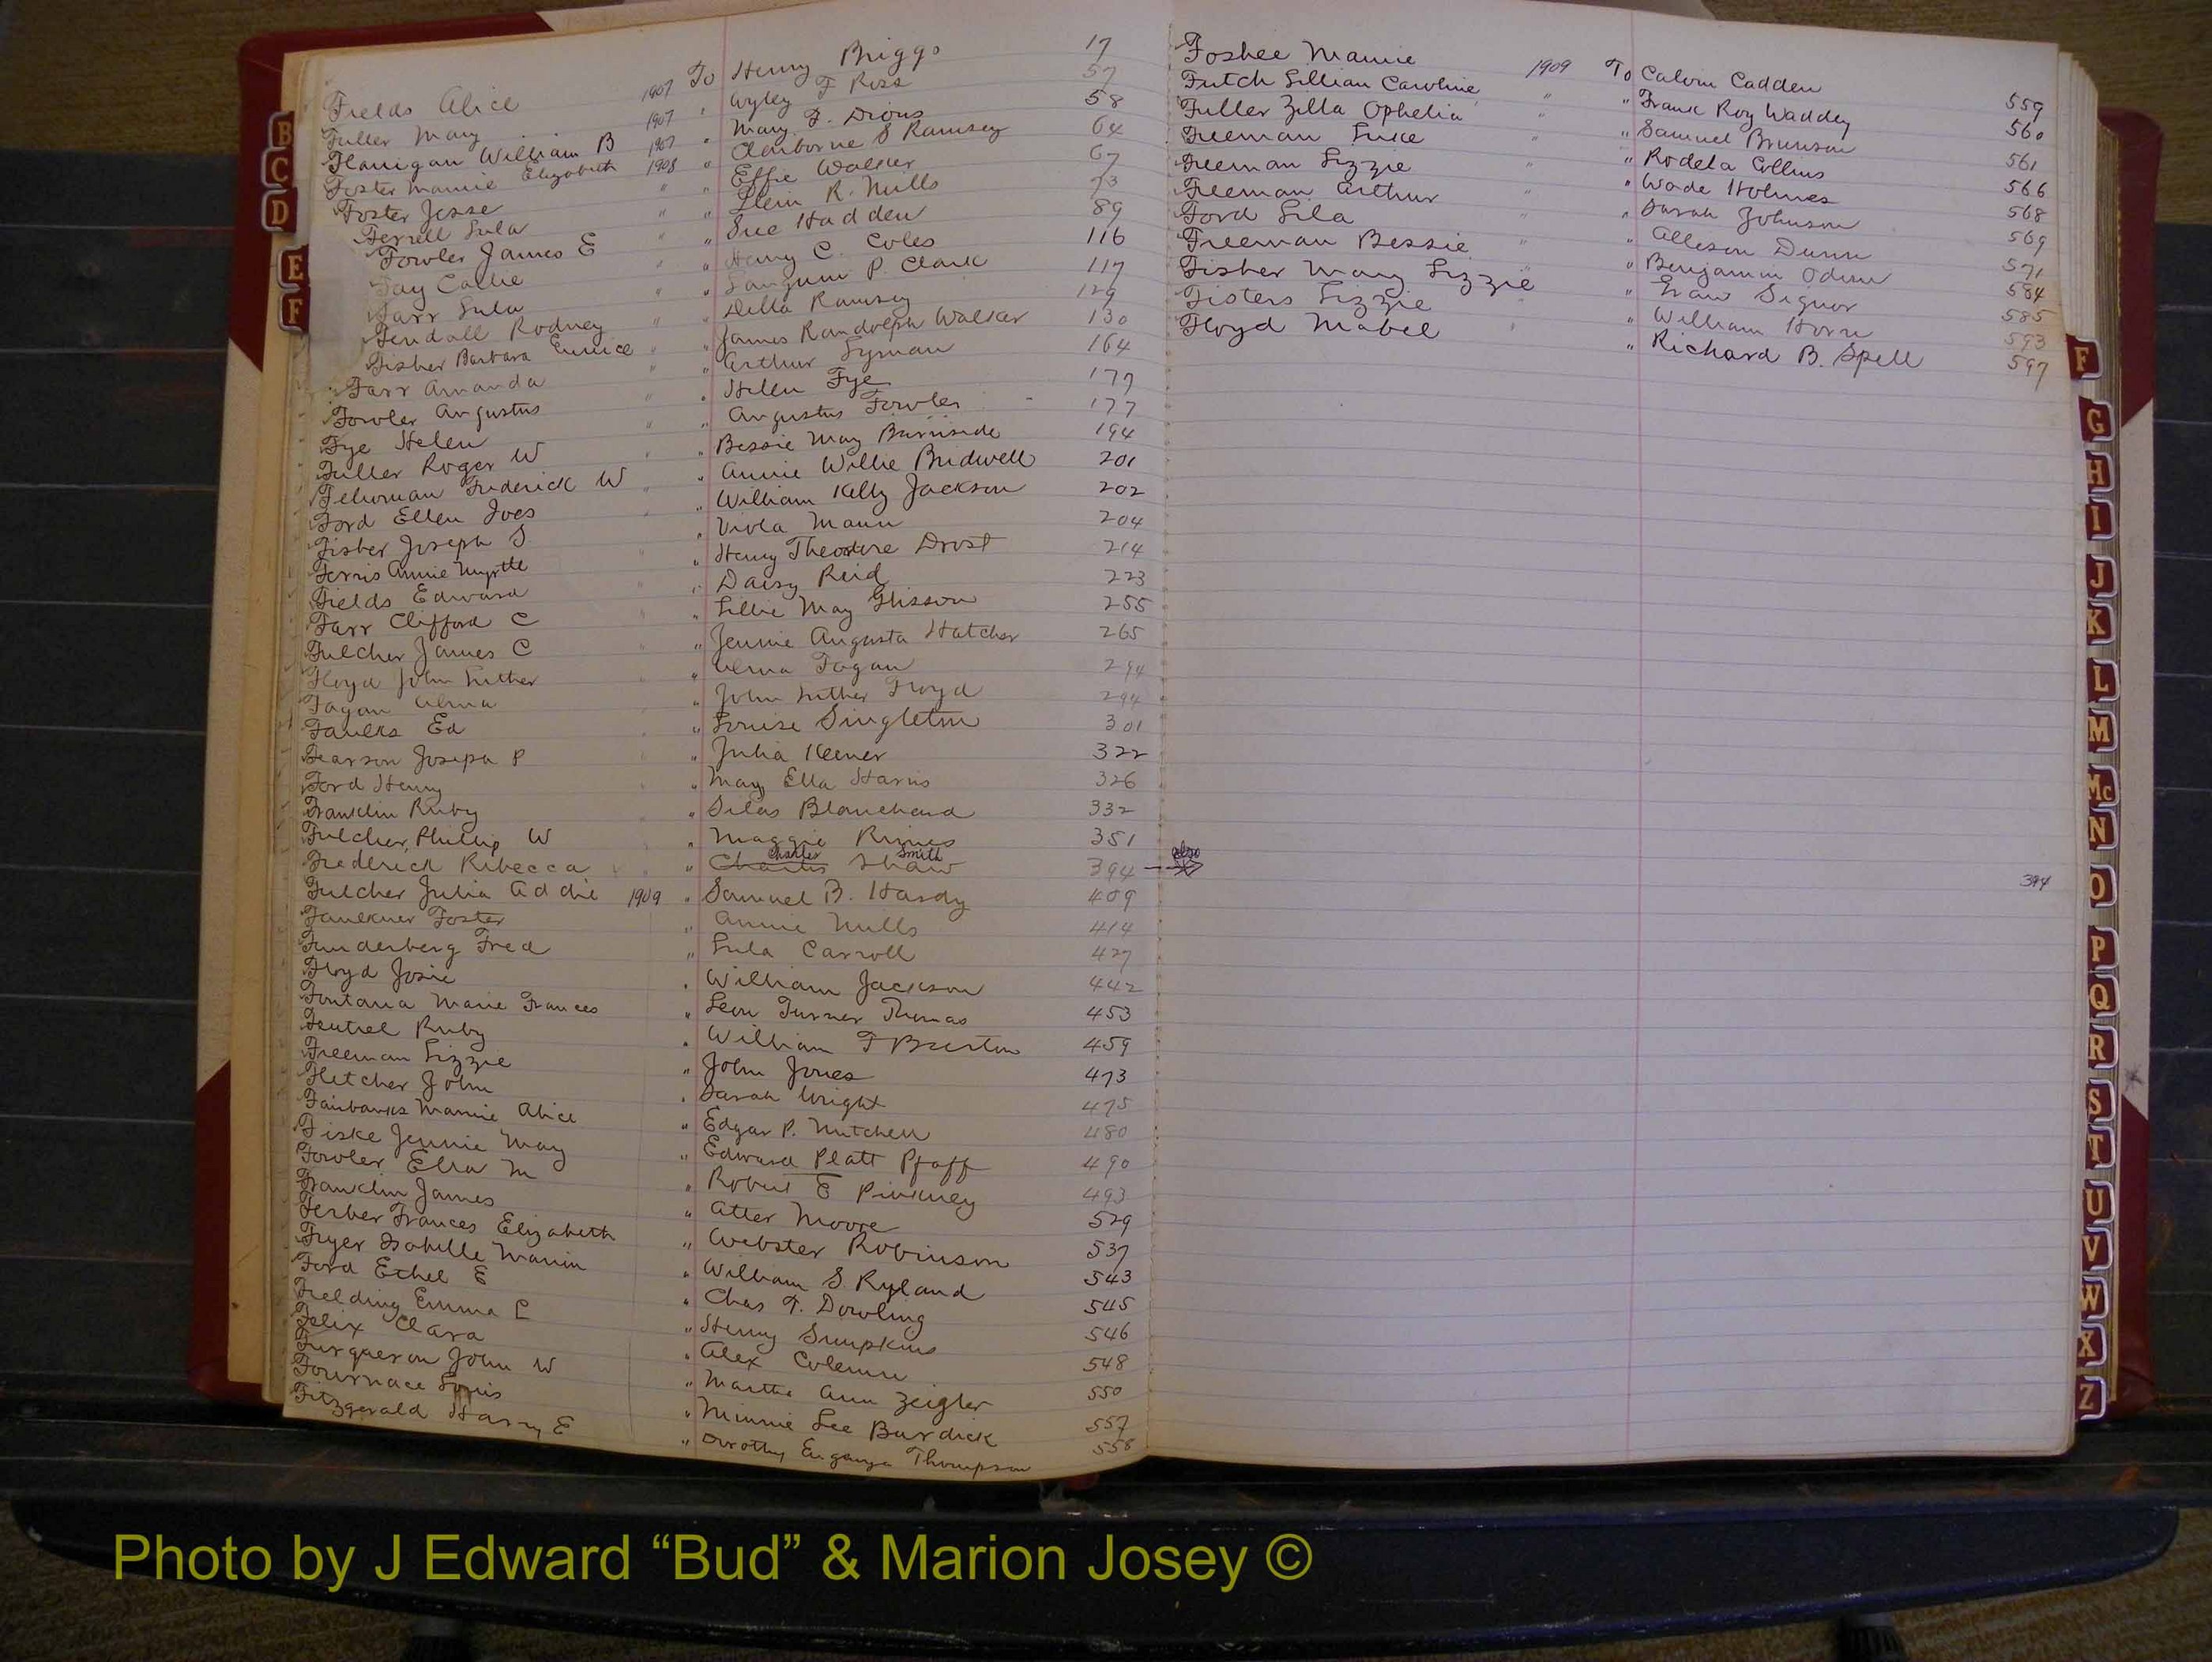 Fields Alice 1907 To Henry Briggs 17
Fuller Mary 1907 " Wyley F Ross 57
Flanigan William B 1907 " Mary F. Dious 58
Foster Mamie Elizabeth 1908 " Claiborne S Ramsey 64
Foster Jesse " " Effie Walker 67
Ferrell Lula " " R. Mills 73
Fowler James E " " Sue Hadden 89
Fay Callie " " Henry C. Coles 116
Farr Lula " " P. Clark 117
Fendall Rodney " " Della Ramsey 129
Fisher Barbara Eunice " " James Randolph Walker 130
Farr Amanda " " Arthur Lyman 164
Fowler Augustus " " Helen Fye 177
Fye Helen " " Augustus Fowler 177
Fuller Roger W " " Bessie May Burnside 194
Frederick W " " Annie Willie Bridwell 201
Ford Ellen Ives " " William Kelly Jackson 202
Fisher Joseph S " Viola Mann 204
Ferris Annie Myrtle " " Henry Theodore Drost 214
Fields Edward " " Daisy Reid 223
Farr Clifford C " " Lillie May Glisson 255
Fulcher James C " " Jennie Augusta Hatcher 265
Floyd John Luther " " Alma Fagan 294
Fagan Alma " " John Luther Floyd 294
Faulks Ed " " Louise Singleton 301
Fearson Joseph P " " Julia Keener 322
Ford Henry " " May Ella Harris 326
Franklin Ruby " " Silas Blanchard 332
Fulcher, Phillip W " " Maggie Rimes 351
Charles Smith also
Frederick Ribecca " " Charles Shaw 394
394
Fulcher Julia Addie 1909 " Samuel B. Hardy 409
Faulkner Foster " Annie Mills 414
Funderberg Fred " Lula Carroll 427
Floyd Josie " William Jackson 442
Fontana Marie Frances " Leon Turner Thomas 453
Ruby " William F Burton 459
Freeman Lizzie " John Jones 473
Fletcher John " Sarah Wright 475
Fairbanks Mamie Alice " Edgar P. Mitchell 480
Fiske Jennie May " Edward Platt Pfaff 490
Fowler Ella M " Robert E Pinkney 493
Franklin James " Atter Moore 529
Ferber Frances Elizabeth " Webster Robinson 537
Fryer Isabelle " William S. Ryland 543
Ford Ethel E " Chas F. Dowling 545
Fielding Emma L " Henry Simpkins 546
Felix Clara " Alex 548
Furqueron John W " Martha Ann Zeigler 550
Fournace Louis " Minnie Lee Burdick 557
Fitzgerald Harry E " Dorothy Thompson 558
Foshee Mamie 1909 To Calvin Cadden 559
Futch Lillian Caroline " " Frank Roy Waddey 560
Fuller Zilla Ophelia " " Samuel Brunson 561
Freeman " " Rodela Collins 566
Freeman Lizzie " " Wade Holmes 568
Freeman Arthur " " Sarah Johnson 569
Ford Lila " " Alleson Dunn 571
Freeman Bessie " " Benjamin Odom 584
Fisher Mary Lizzie " " Signor 585
Fisters Lizzie " " William Horn 593
Floyd Mabel " " Richard B. Spell 597
B
C
D
E
F
F
G
H
I
J
K
L
M
Mc
N
O
P
Q
R
S
T
U
V
W
X
Z
Photo by J Edward “Bud” & Marion Josey ©